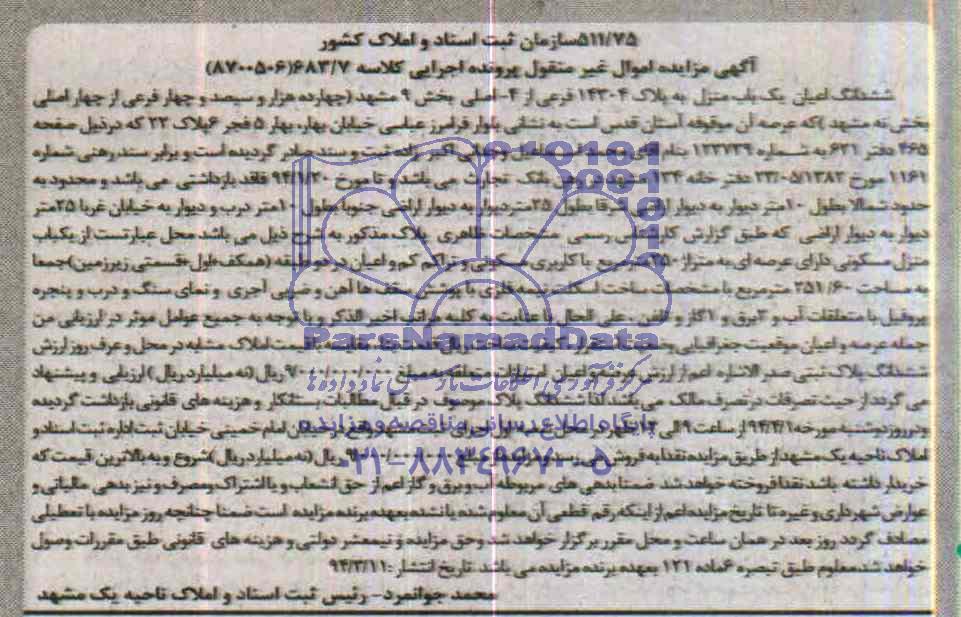 ۵۱۱/۷۵سازمان ثبت اسناد و املاک کشور
آگهی مزایده اموال غیر منقول پرونده اجرایی کلاسه ۶۸۳/۷(۸۷۰۰۵۰۶)
ششدانگ اعیان یک باب منزل به پلاک ۱۴۳۰۴ فرعی از ۴-اصلی بخش ۹ مشهد (چهارده هزار و سیصد و چهار فرعی از چهار اصلی
بخش نه مشهد )که عرصه آن موقوفه آستان قدس است به نشانی بلوار فرامرز عباسی خیابان بهار، بهار ۵ فجر ۶پلاک ۲۲ که در ذیل صفحه
۴۶۵ دفتر ۶۲۱ به شماره ۱۲۲۷۳۹ بنام آقای ثبت و سند صادر گردیده است و برابر سند رهنی شماره
۱۱۶۹۱ مورخ ۲۳/۰۵/۱۳۸۲ دفتر خانه ۱۲۴ مشهد در رهن بانک تجارت می باشد و تا مورخ ۹۴/۱/۳۰ فاقد بازداشتی می باشد و محدود به
حدود شمالا بطول ۱۰متر دیوار به دیوار اراضی شرقا بطول ۲۵متر دیوار به دیوار اراضی جنوبا بطول ۱۰متر درب و دیوار به خیابان غربا ۲۵متر
دیوار به دیوار اراضی که طبق گزارش کارشناس رسمی مشخصات ظاهری پلاک مذکور به شرح ذیل می باشد محل عبارتست از یکباب
منزل مسکونی دارای عرصه ای به متراژ ۲۵۰مترمربع با کاربری مسکونی و تراکم کم و اعیان در دو طبقه (همکف-اول-قسمتی زیرزمین)جمعا
به مساحت ۳۵۱/۶۰ مترمربع با مشخصات ساخت اسکلت نیمه فلزی با پوشش سقف ها آهن و طاقی آجری و نمای سنگ و درب و پنجره
پروفیل با متعلقات آب و ۲برق و ۱گاز و تلفن . علی الحال با عنایت به کلیه مراتب اخیر الذکر و با توجه به جمیع عوامل موثر در ارزیابی من
جمله عرصه و اعیان موقعیت جغرافیایی مقایسه با قیمت املاک مشابه در محل و عرف روز ارزش
ششدانگ پلاک ثبتی صدر الاشاره اعم از ارزش عرصه و اعیان امتیازات متعلقه به مبلغ ۹/۰۰۰/۰۰۰/۰۰۰ریال (نه میلیارد ریال ) ارزیابی و پیشنهاد
می گردد از حیث تصرفات در تصرف مالک می باشد لذا ششدانگ پلاک موصوف در قبال مطالبات بستانکار و هزینه های قانونی بازداشت گردیده
و در روز دوشنبه مورخه ۹۴/۴/۱ از ساعت ۹ الی ۱۲ ظهر در محل اجرای ثبت مشهد واقع در خیابان امام خمینی خیابان ثبت اداره ثبت اسناد و
املاک ناحیه یک مشهد از طریق مزایده نقدا به فروش می رسد ریال (نه میلیارد ریال)شروع و به بالاترین قیمت که
خریدار داشته باشد نقدا فروخته خواهد شد ضمنا بدهی های مربوطه آب و برق و گاز اعم از حق انشعاب و یا اشتراک و مصرف و نیز بدهی مالیاتی و
عوارض شهرداری و غیره تا تاریخ مزایده اعم از اینکه رقم قطعی آن معلوم شده یا نشده بعهده برنده مزایده است ضمنا چنانچه روز مزایده با تعطیلی
مصادف گردد روز بعد در همان ساعت و محل مقرر برگزار خواهد شد وحق مزایده و نیمعشر دولتی و هزینه های قانونی طبق مقررات وصول
خواهد شد.معلوم طبق تبصره ۶ماده ۱۲۱ بعهده برنده مزایده می باشد تاریخ انتشار:۹۴/۳/۱۱
محمد جوانمرد- رئیس ثبت اسناد و املاک ناحیه یک مشهد
ParsNamadData
مرکز فرآوری اطلاعات پارس نماد داده ها
پایگاه اطلاع رسانی مناقصه و مزایده
۰۲۱-۸۸۳۴۹۶۷۰-۵